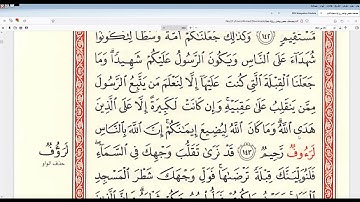 مُّسْتَقِيمٍ ١٤٢ وَكَذَٰلِكَ جَعَلْنَاكُمْ أُمَّةً وَسَطًا لِّتَكُونُوا
شُهَدَاءَ عَلَى النَّاسِ وَيَكُونَ الرَّسُولُ عَلَيْكُمْ شَهِيدًا وَمَا
جَعَلْنَا الْقِبْلَةَ الَّتِي كُنتَ عَلَيْهَا إِلَّا لِنَعْلَمَ مَن يَتَّبِعُ الرَّسُولَ
مِمَّن يَنقَلِبُ عَلَىٰ عَقِبَيْهِ وَإِن كَانَتْ لَكَبِيرَةً إِلَّا عَلَى الَّذِينَ
هَدَى اللَّهُ وَمَا كَانَ اللَّهُ لِيُضِيعَ إِيمَانَكُمْ إِنَّ اللَّهَ بِالنَّاسِ
لَرَءُوفٌ رَّحِيمٌ ١٤٣ قَدْ نَرَىٰ تَقَلُّبَ وَجْهِكَ فِي السَّمَاءِ
فَلَنُوَلِّيَنَّكَ قِبْلَةً تَرْضَاهَا فَوَلِّ وَجْهَكَ شَطْرَ الْمَسْجِدِ
لَرَؤُفٌ
حذف الواو